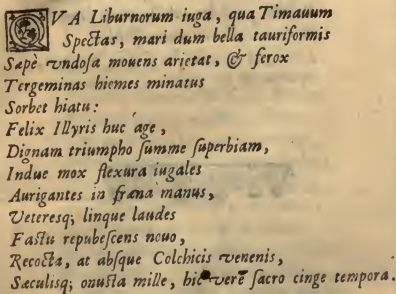 QVA Liburnorum iuga, qua Timauum
Spectas, mari dum bella tauriformis
Sæpè vndosa mouens arietat, & ferox
Tergeminas hiemes minatus
Sorbet hiatu:
Felix Illyris huc age,
Dignam triumpho summe superbiam,
Indue mox flexura iugales
Aurigantes in fræna manus,
Veteresq; linque laudes
Fastu repubescens nouo,
Recocta, at absque Colchicis venenis,
Sæculisq; onusta mille, hic verē sacro cinge tempora.